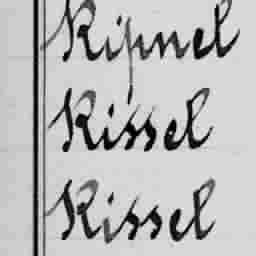 Kipnel
Kissel
Kissel